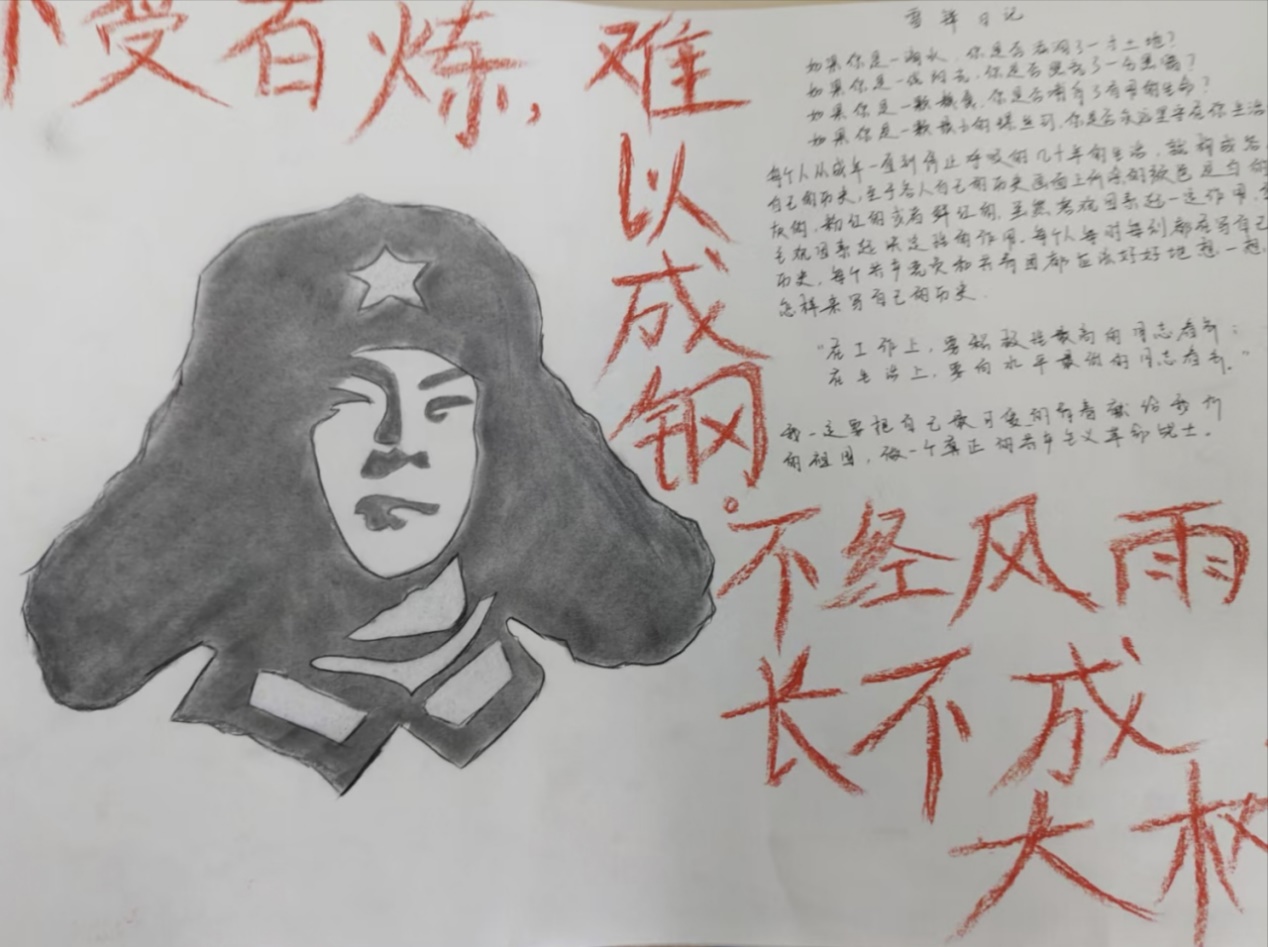 不受百炼,难
以
成
钢。
不经风雨
长不成
大树
雷锋日记
如果你是一滴水,你是否滋润了一寸土地?
如果你是一线阳光,你是否照亮了一分黑暗?
如果你是一颗粮食,你是否哺育了有用的生命?
如果你是一颗最小的螺丝钉,你是否永远坚守在你生活
每个人从成年一直到停止呼吸的几十年的生活,就构成各
自己的历史,至于各人自己的历史画面上所涂的颜色是白的
灰的,粉红的或者鲜红的,虽然客观因素起一定作用,主
观因素起决定性的作用。每个人每时每刻都在写自己
历史,每个共产党员和共青团都应该好好地想一想,
怎样来写自己的历史.
“在工作上,要向积极性最高的同志看齐;
在生活上,要向水平最低的同志看齐。”
我一定要把自己最可爱的青春献给我们
的祖国,做一个真正的共产主义革命战士。